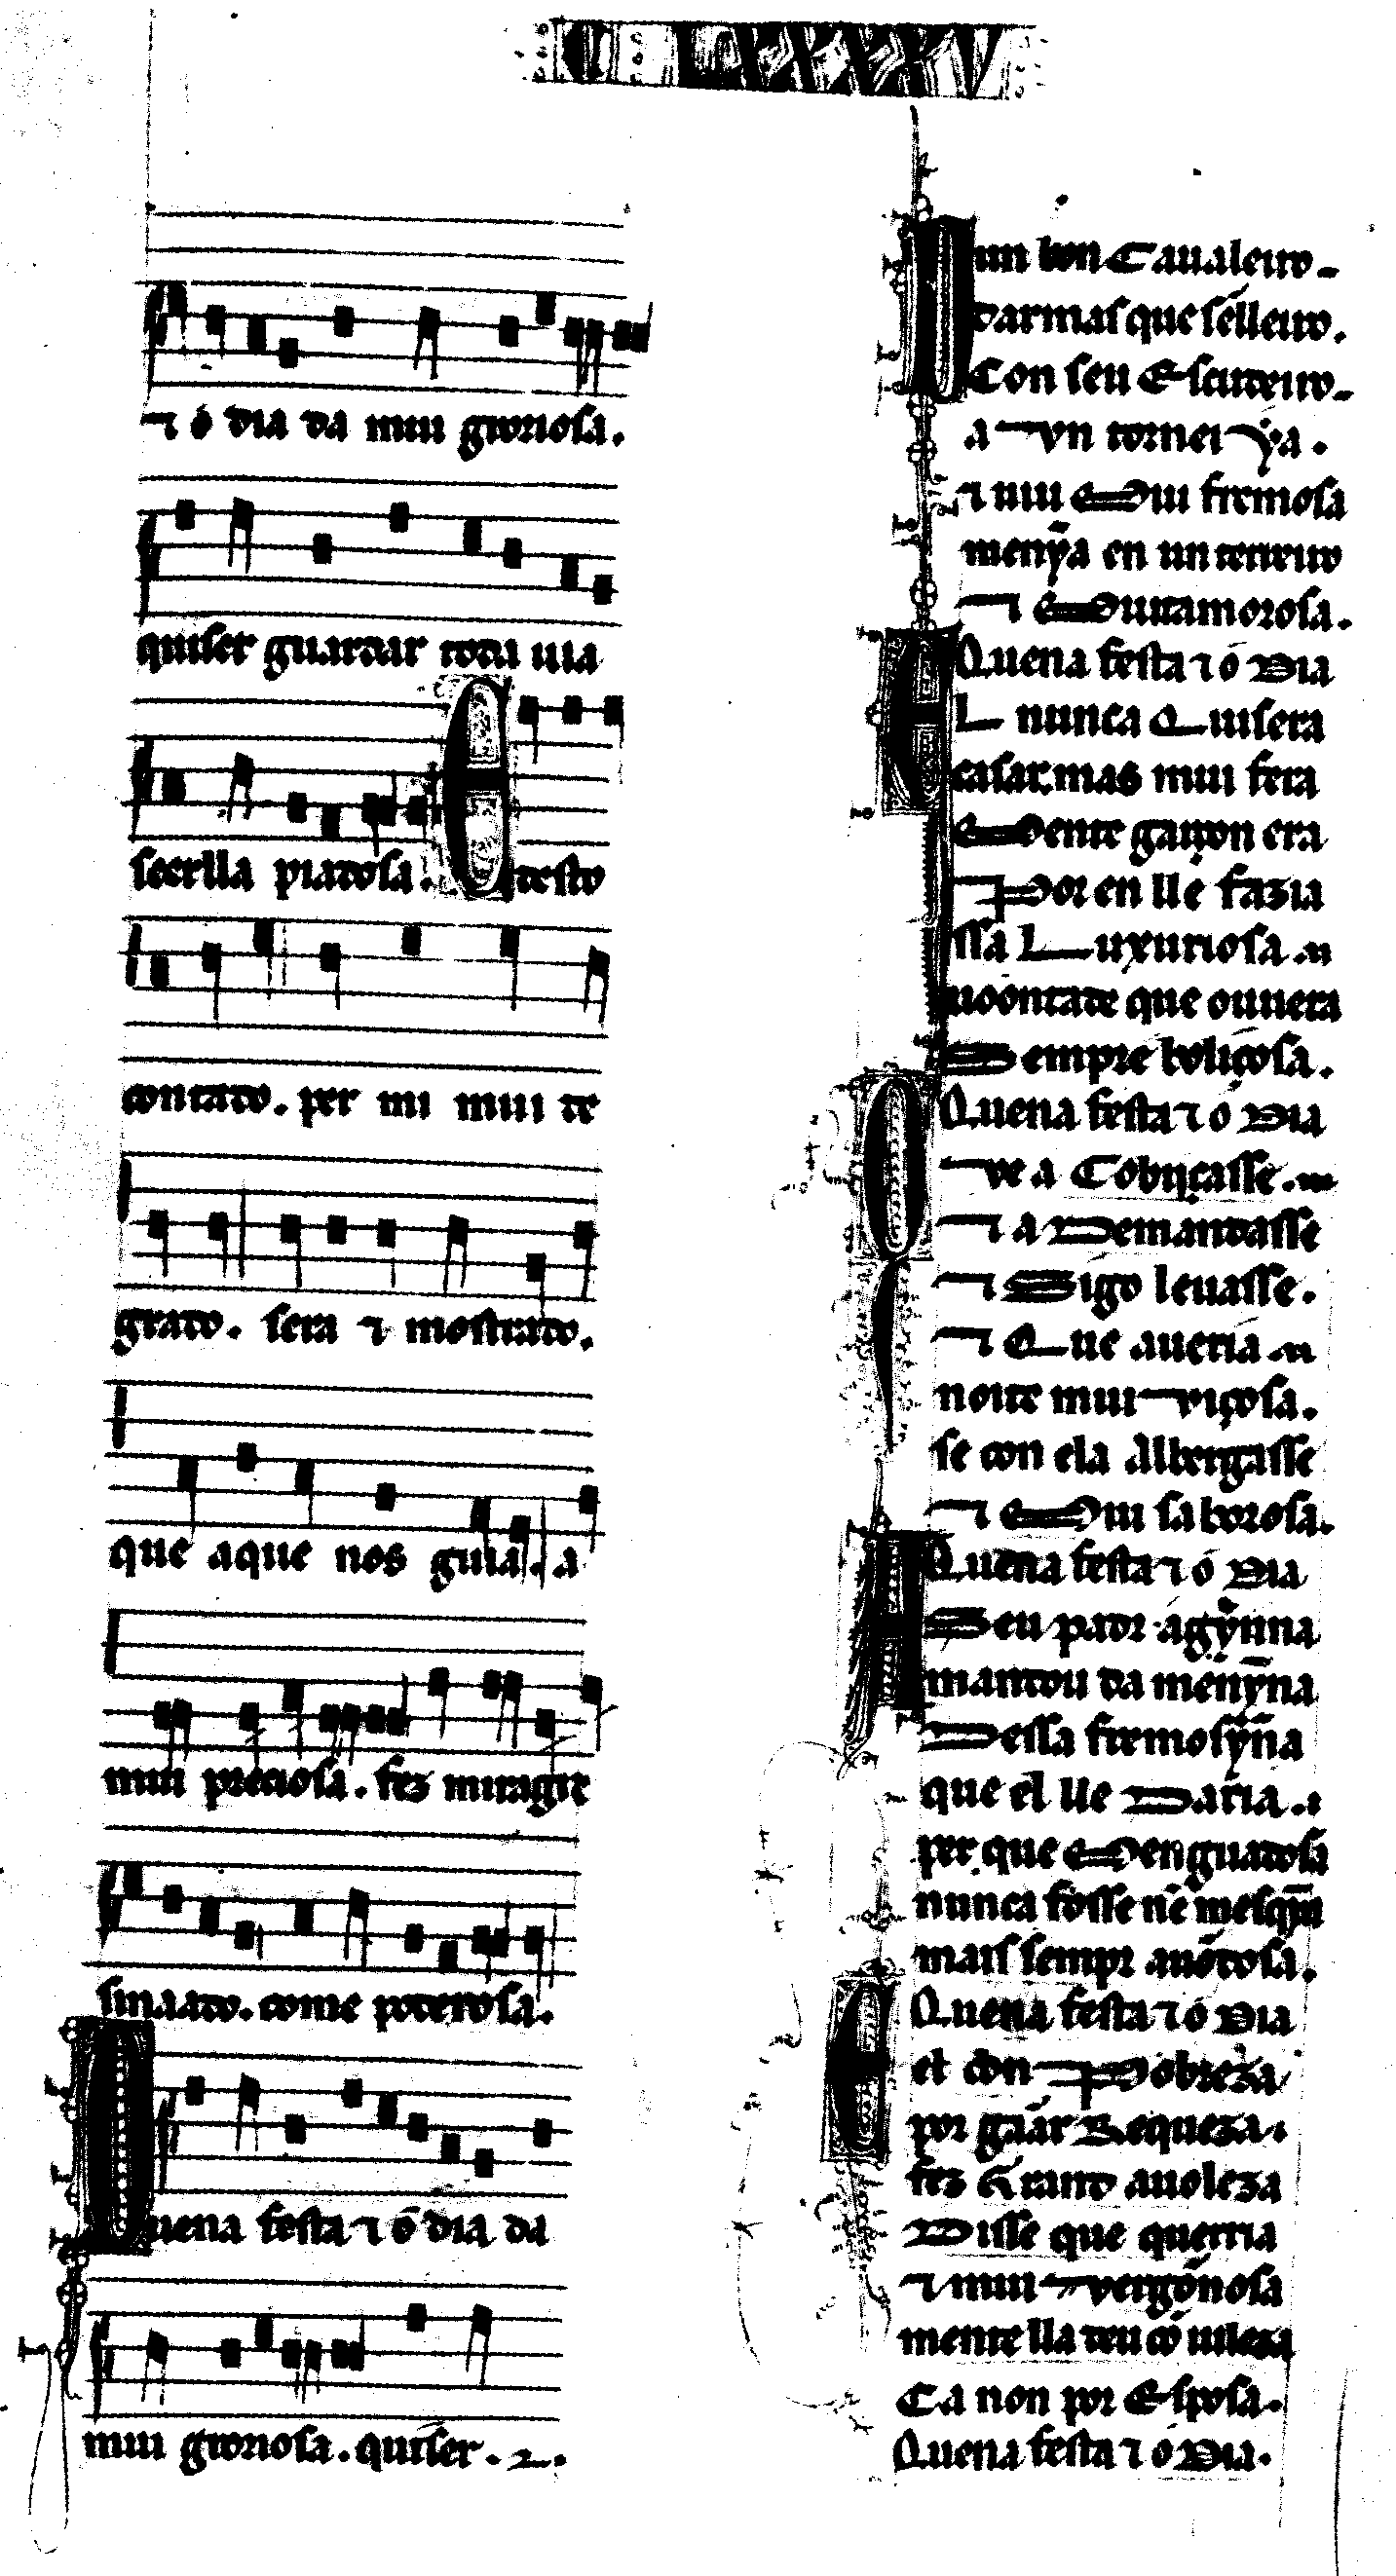 CLXXXV
⁊ o dia da mui groriosa.
quiser guardar todauia
seerlla piadosa. E desto
contado. per mi mui de
grado. sera ⁊ mostrado.
que aque nos guia. a
mui preciosa. fez miragre
sinaado. come poderosa.
Quena festa ⁊ o dia da
mui groriosa. quiser. ⁊.
Dun bon Caualeiro
darmas que senlleiro.
Con seu Escudeiro
a un tornei ya.
⁊ mui Mui fremosa
menỹa en un terreiro
⁊ Muit amorosa.
Quena festa ⁊ o Dia
EL nunca Quisera
casar. mas mui fera
Mente gaiçon era
Por en lle fazia
ssa Luxuriosa
uoontade que ouuera
Sempre boliçosa.
Quena festa ⁊ o Dia
Que a Cobijcasse.
⁊ a Demandasse
⁊ Sigo leuasse.
⁊ Que aueria
noite mui viçosa.
se con ela albergasse
⁊ Mui saborosa.
Quena festa ⁊ o Dia
A Seu padr agỹnna
mandou da menỹna
Dessa fremosỹna
que el lle Daria.
per que Menguadosa
nunca fosse nẽ mesqỹa
mais sempr auõdosa.
Quena festa ⁊ o Dia
E el con Pobreza
por gãar Requeza.
fez Grand auoleza
Disse que querria
⁊ mui vergonnosa
mente lla deu cõ uileza
Ca non por Esposa.
Quena festa ⁊ o Dia.